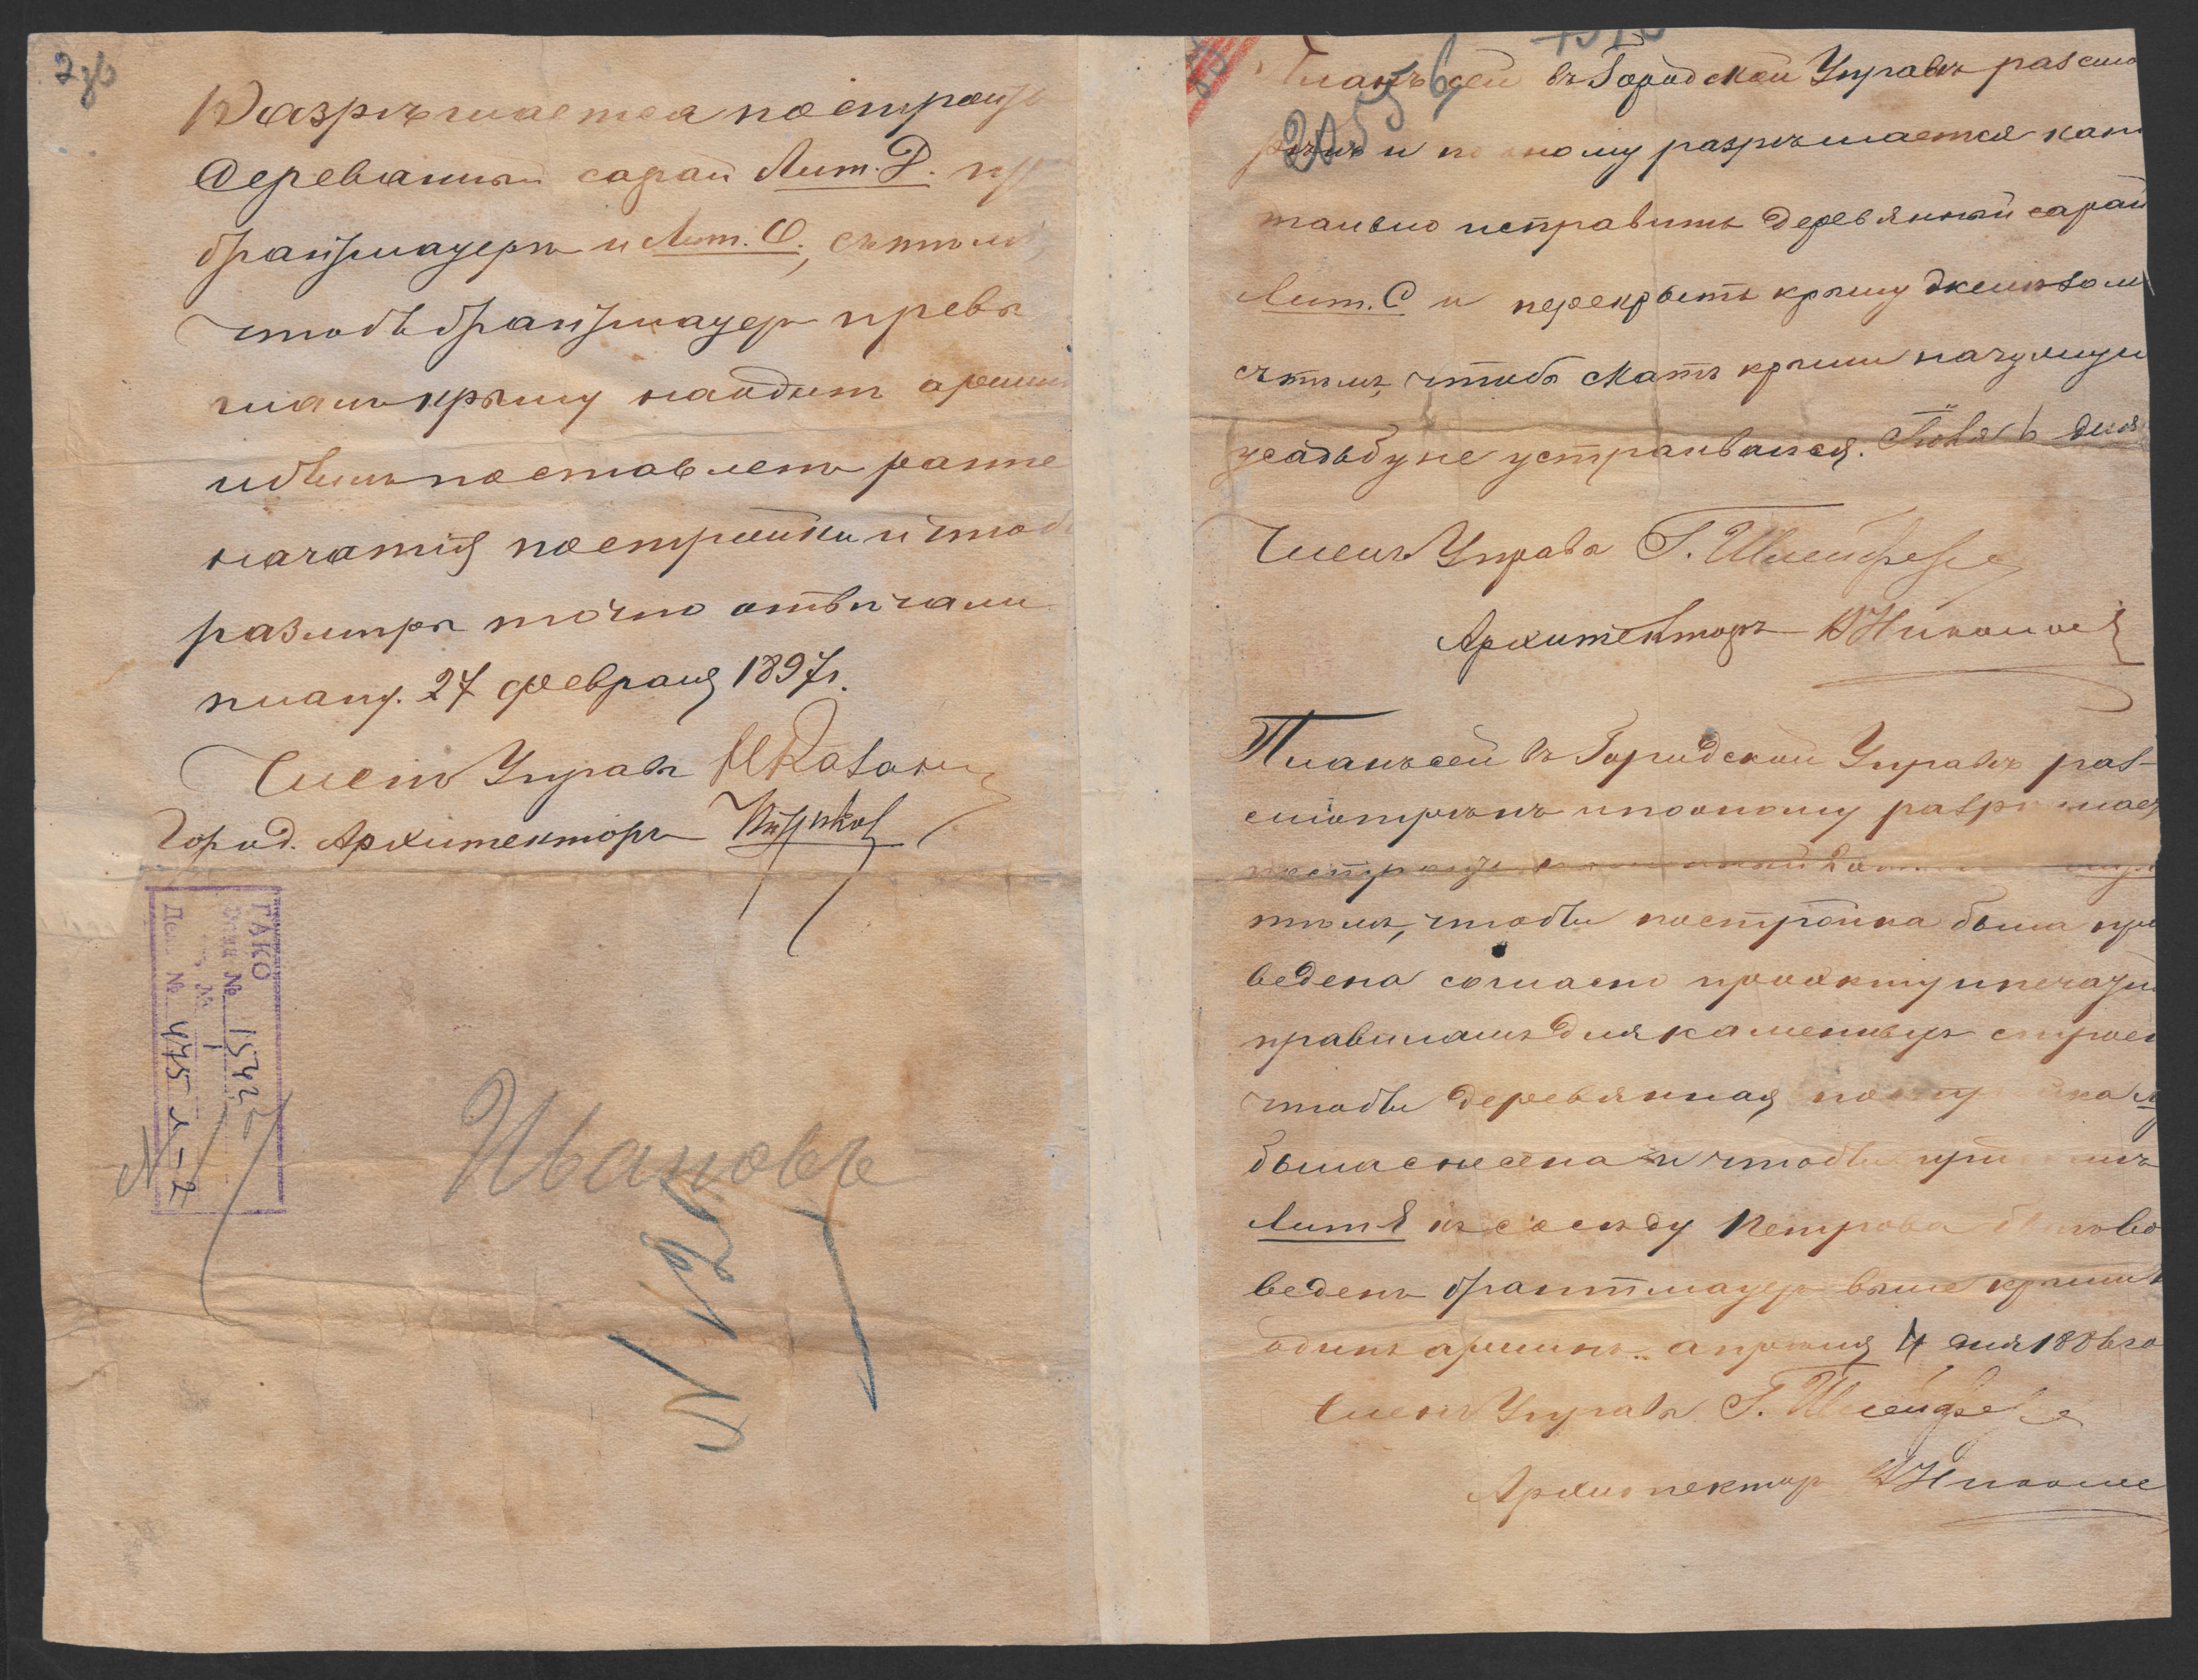 2об
Разрѣшается построить
деревянный сарай Лит. D. при
брантмауерѣ и Лит. C., съ тѣмъ,
чтобъ брантмауеръ превы
шалъ крышу на одинъ аршинъ
и былъ поставленъ ранѣе
начатія постройки и чтобъ
размѣры точно отвѣчали
плану. 27 февраля 1897 г.
Членъ Управы
Город. Архитекторъ
ГАКО
Фонд № 1542
№ 1
Дело № 475 л-2
Ивановъ
N
План сей въ Городской Управѣ разсмо
2055
рѣнъ и по оному разрѣшается капи
тально исправить деревянный сарай
Лит. C и перекрыть крышу желѣзомъ
съ тѣмъ, чтобы скатъ крыши на чужую
усадьбу не устраивался. Іюня 6 дня
Членъ Управы Г. Шлейфер
Архитекторъ В Николаев
Планъ сей въ Городской Управѣ раз-
смотрѣнъ и по оному разрѣшает
построить
тѣмъ, чтобы постройка была про
ведена согласно проэкту и печатн
правиламъ для каменныхъ строен
чтобы деревянная постройка
была снесена и чтобы при
Лит къ сосѣду Петрова былъ во
веденъ брантмауеръ выше крыши
одинъ аршинъ. апрѣля 4 дня 1886 го
Членъ Управы Г. Шлейфер
Архитектор В Николае